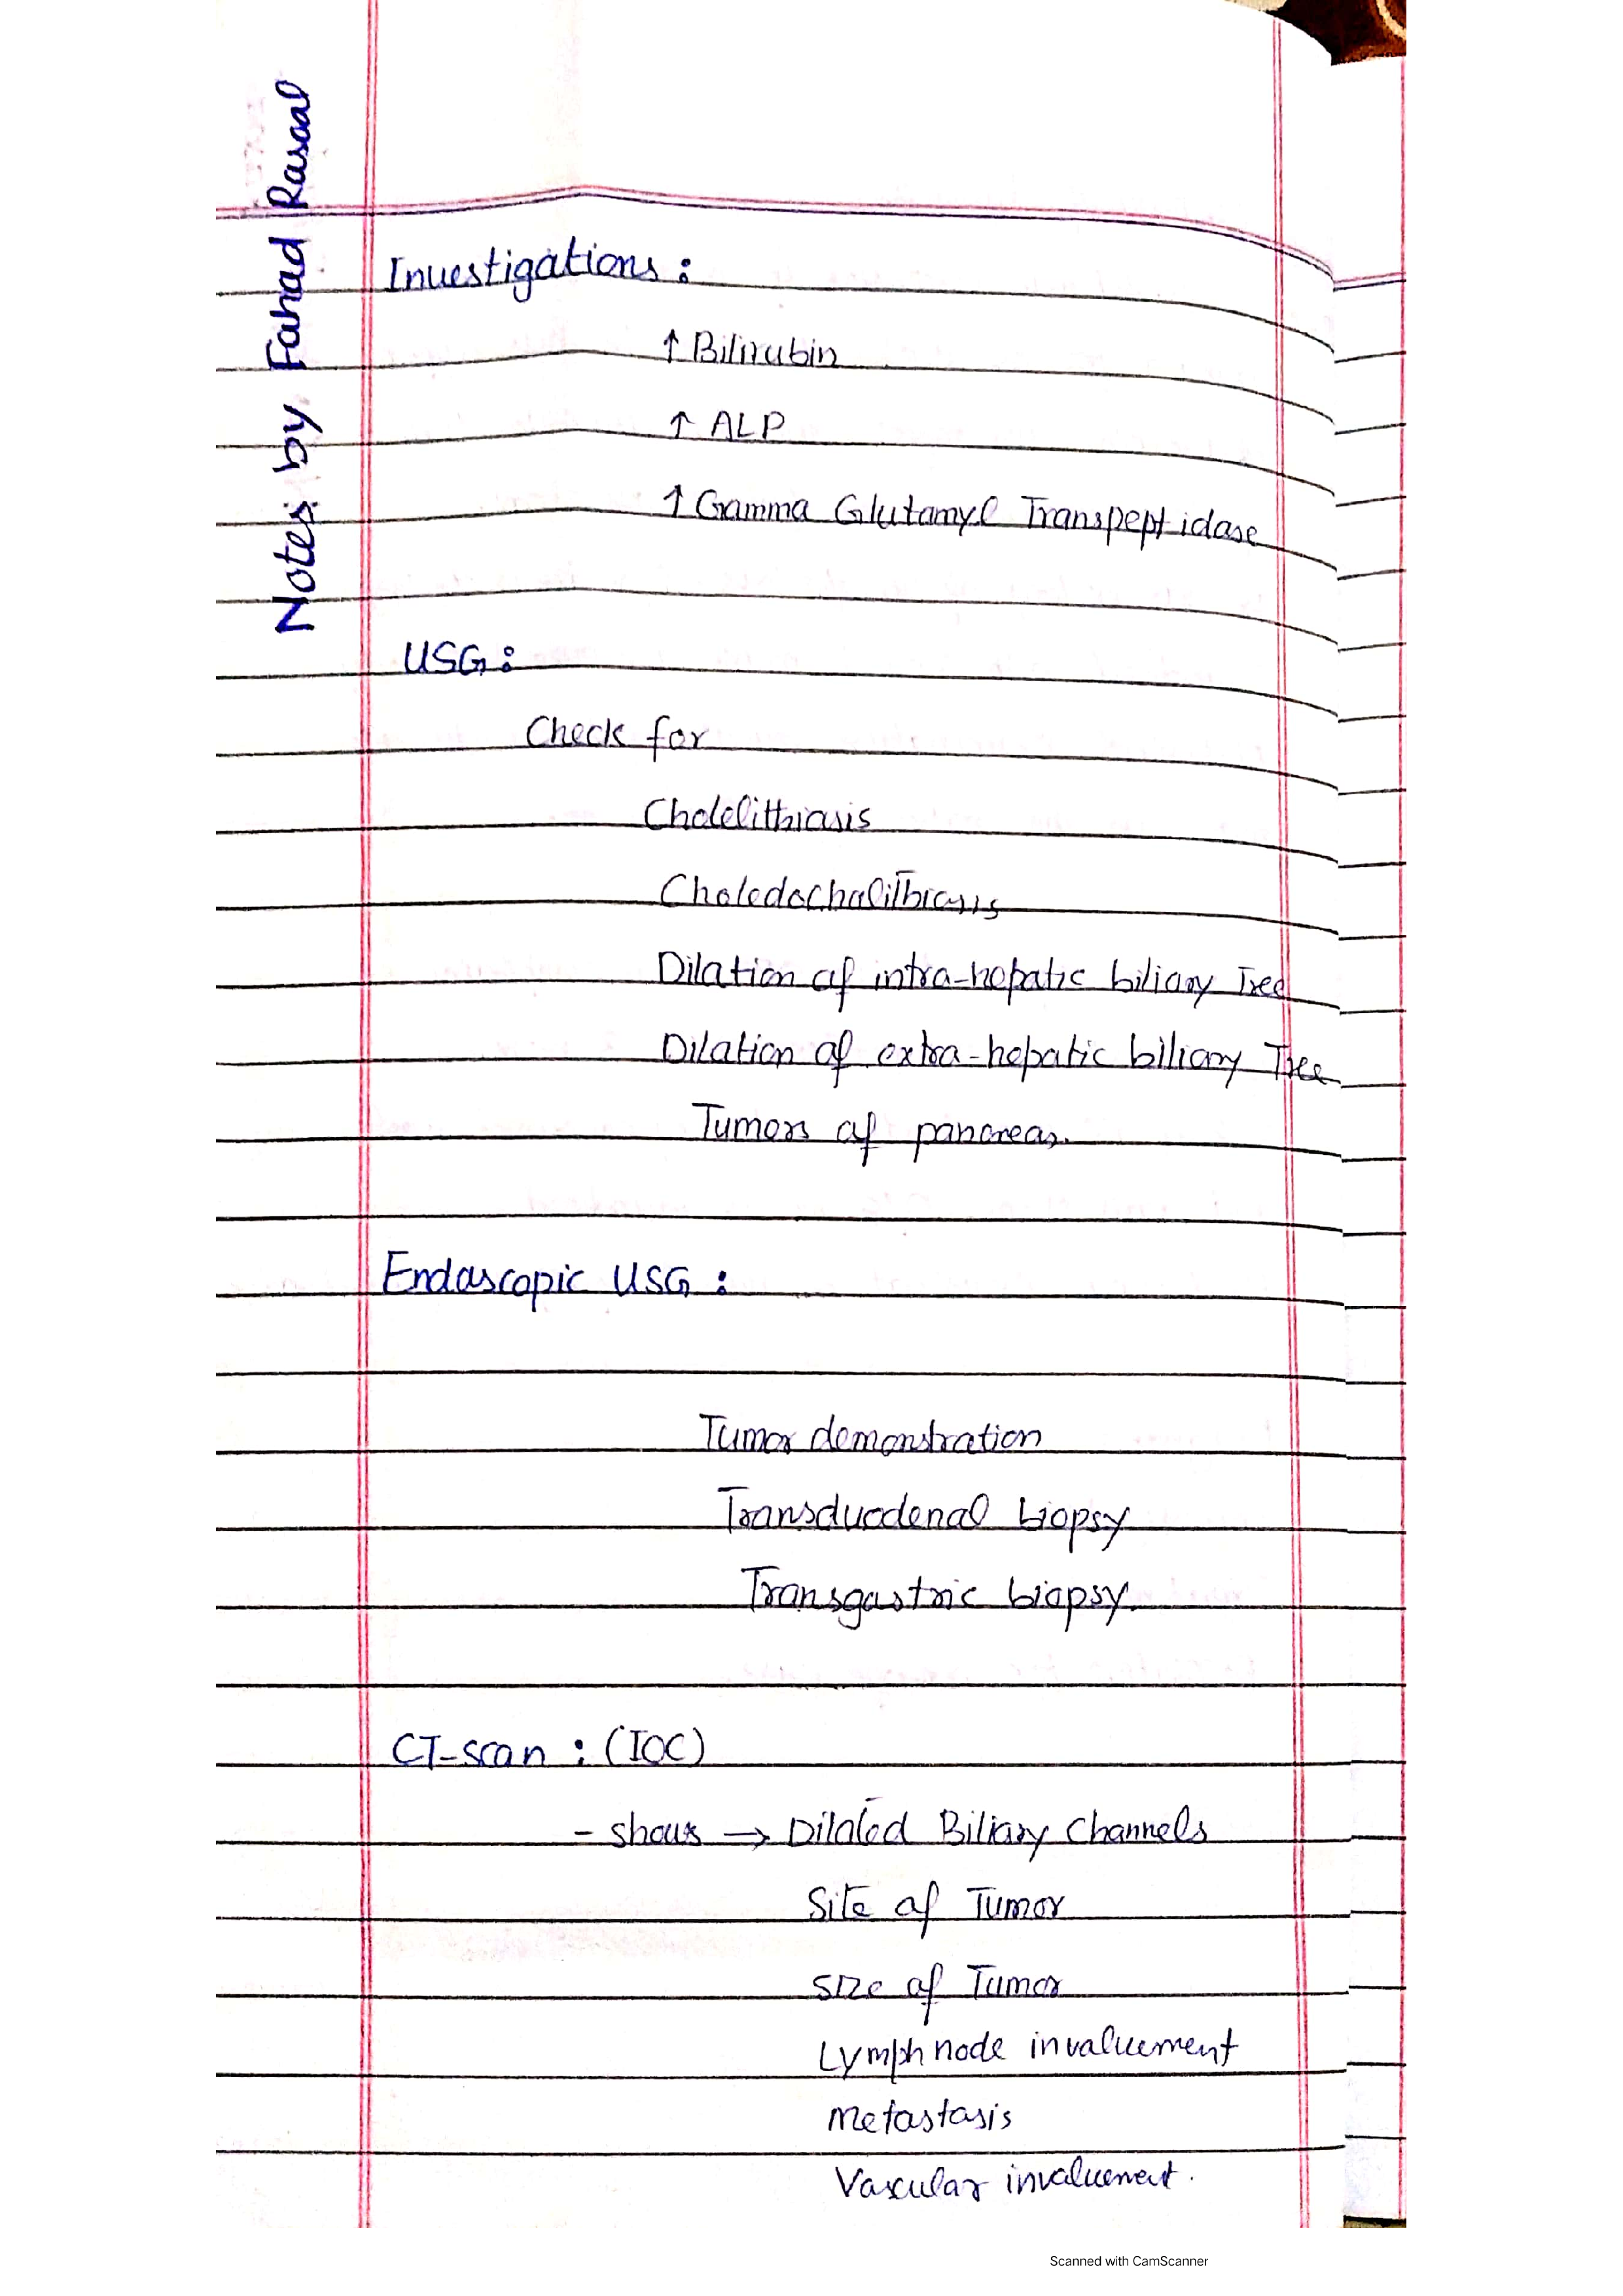 Notes by Fahad Rasool
Investigations :
↑ Bilirubin
↑ ALP
↑ Gamma Glutamyl Transpeptidase
USG :
Check for
Cholelithiasis
Choledocholithiasis
Dilation of intra-hepatic biliary Tree
Dilation of extra-hepatic biliary Tree
Tumors of pancreas.
Endoscopic USG :
Tumor demonstration
Transduodenal biopsy
Transgastric biopsy.
CT-scan : (IOC)
- shows → Dilated Biliary Channels
Site of Tumor
Size of Tumor
Lymph node involvement
Metastasis
Vascular involvement.
Scanned with CamScanner